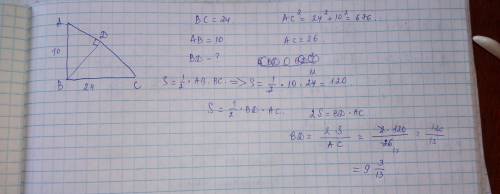 A
D
10
B
24
C
BC = 24
AC² = 24² + 10² = 676.
AB = 10
AC = 26.
BD - ?
S = 1/2 · AB · BC. => S = 1/2 · 10 · 24 = 120
S = 1/2 · BD · AC.
2S = BD · AC
BD = 2 · S / AC = 2 · 120 / 26 13 = 120 / 13
= 9 3/13